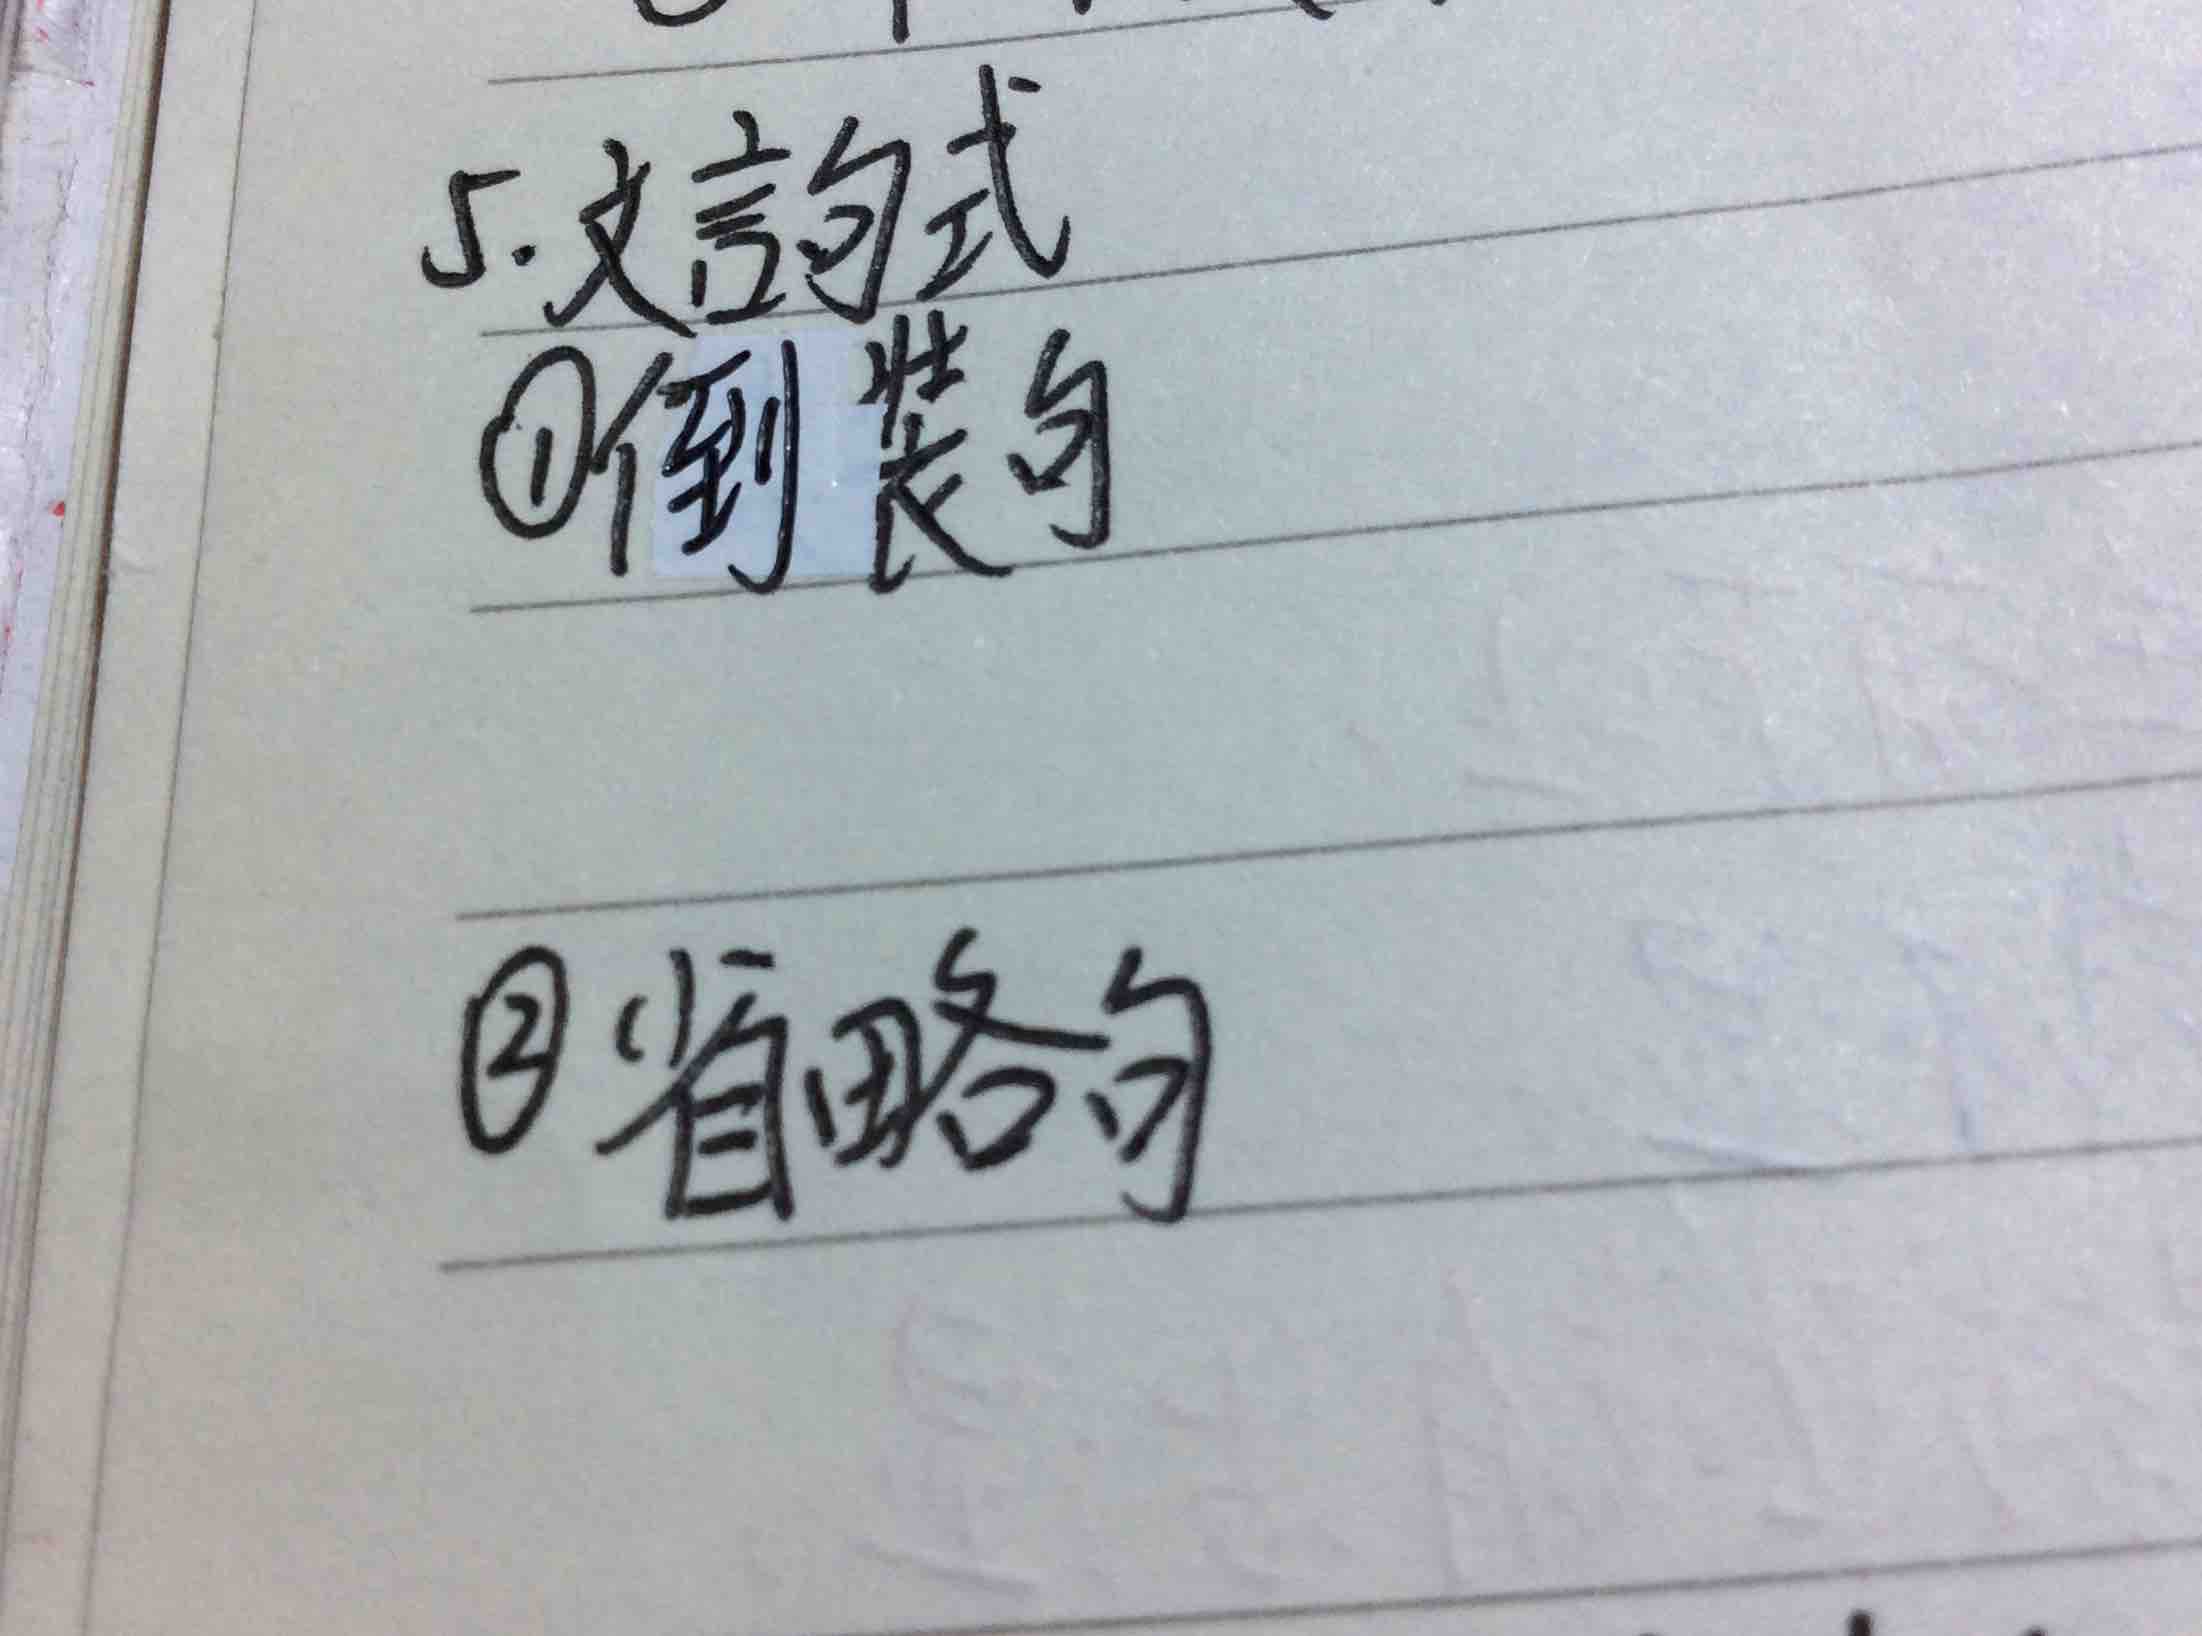 5.文言句式
①倒装句
②省略句